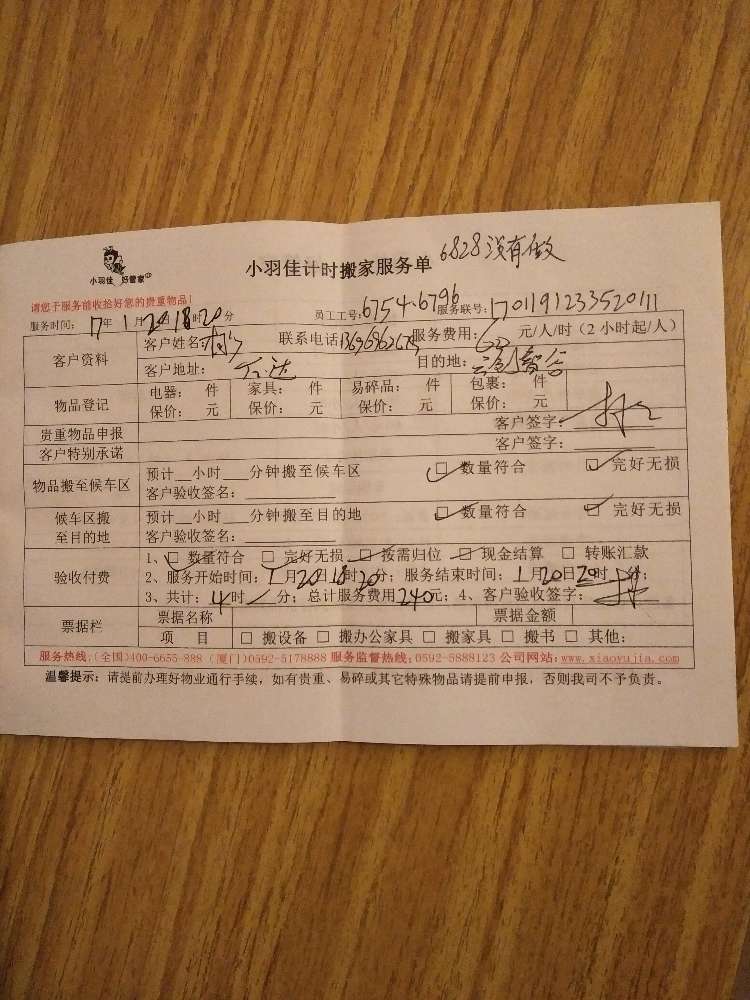 6828没有做
小羽佳 好管家
小羽佳计时搬家服务单
请您于服务前收拾好您的贵重物品!
服务时间: 17年1月20日18时20分 员工工号: 6754.6796 服务联号: 1701191233520111
客户资料 客户姓名: 联系电话 服务费用: 60 元/人/时(2小时起/人)
客户地址: 万达 目的地: 云创智谷
物品登记 电器: 件 家具: 件 易碎品: 件 包裹: 件
保价: 元 保价: 元 保价: 元 保价: 元
贵重物品申报 客户签字:
客户特别承诺 客户签字:
物品搬至候车区 预计__小时__分钟搬至候车区 □数量符合 □完好无损
客户验收签名:
候车区搬至目的地 预计__小时__分钟搬至目的地 □数量符合 □完好无损
客户验收签名:
验收付费 1、□数量符合 □完好无损 □按需归位 □现金结算 □转账汇款
2、服务开始时间: 1月20日18时20分; 服务结束时间: 1月20日20时/分;
3、共计: 4时/分; 总计服务费用240元; 4、客户验收签字:
票据栏 票据名称 票据金额
项 目 □搬设备 □搬办公家具 □搬家具 □搬书 □其他:
服务热线:(全国)400-6655-888 (厦门)0592-5178888 服务监督热线:0592-5888123 公司网站:www.xiaoyujia.com
温馨提示: 请提前办理好物业通行手续,如有贵重、易碎或其它特殊物品请提前申报,否则我司不予负责。